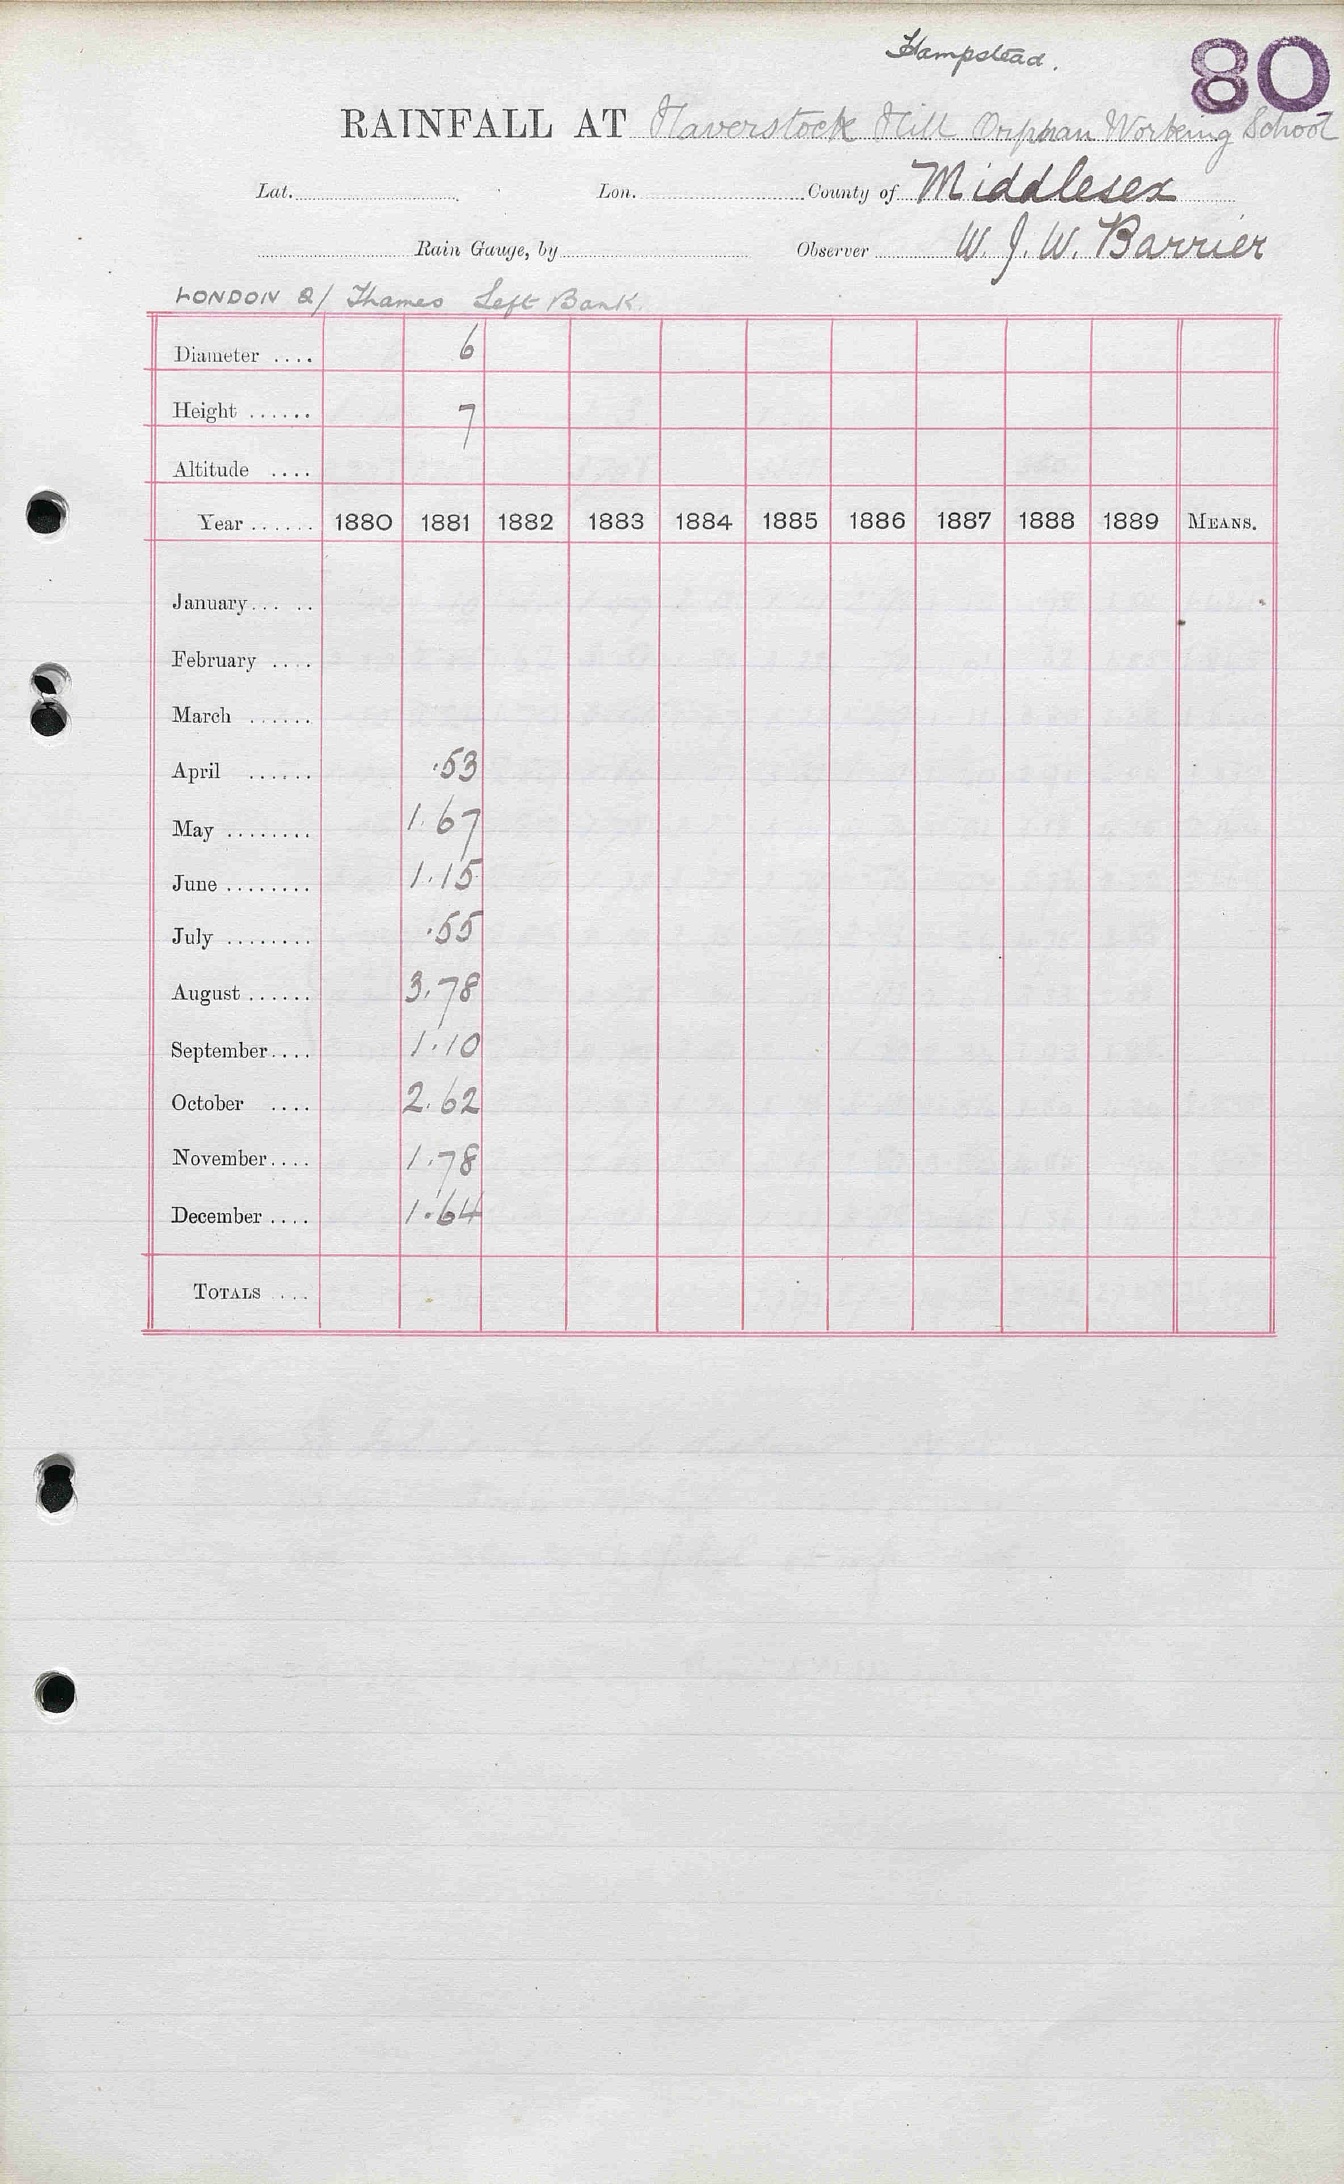 Hampstead.
80
RAINFALL AT Haverstock Hill Orphan Working School
Lat. Lon. County of Middlesex
Rain Gauge, by Observer W. J. W. Barrier
LONDON Q/ Thames Left Bank.
Diameter .... 6
Height ...... 7
Altitude ....
Year ...... 1880 1881 1882 1883 1884 1885 1886 1887 1888 1889 MEANS.
January... ..
February ....
March ......
April ...... .53
May ........ 1.67
June ........ 1.15
July ........ .55
August ...... 3.78
September.... 1.10
October .... 2.62
November.... 1.78
December .... 1.64
TOTALS ....